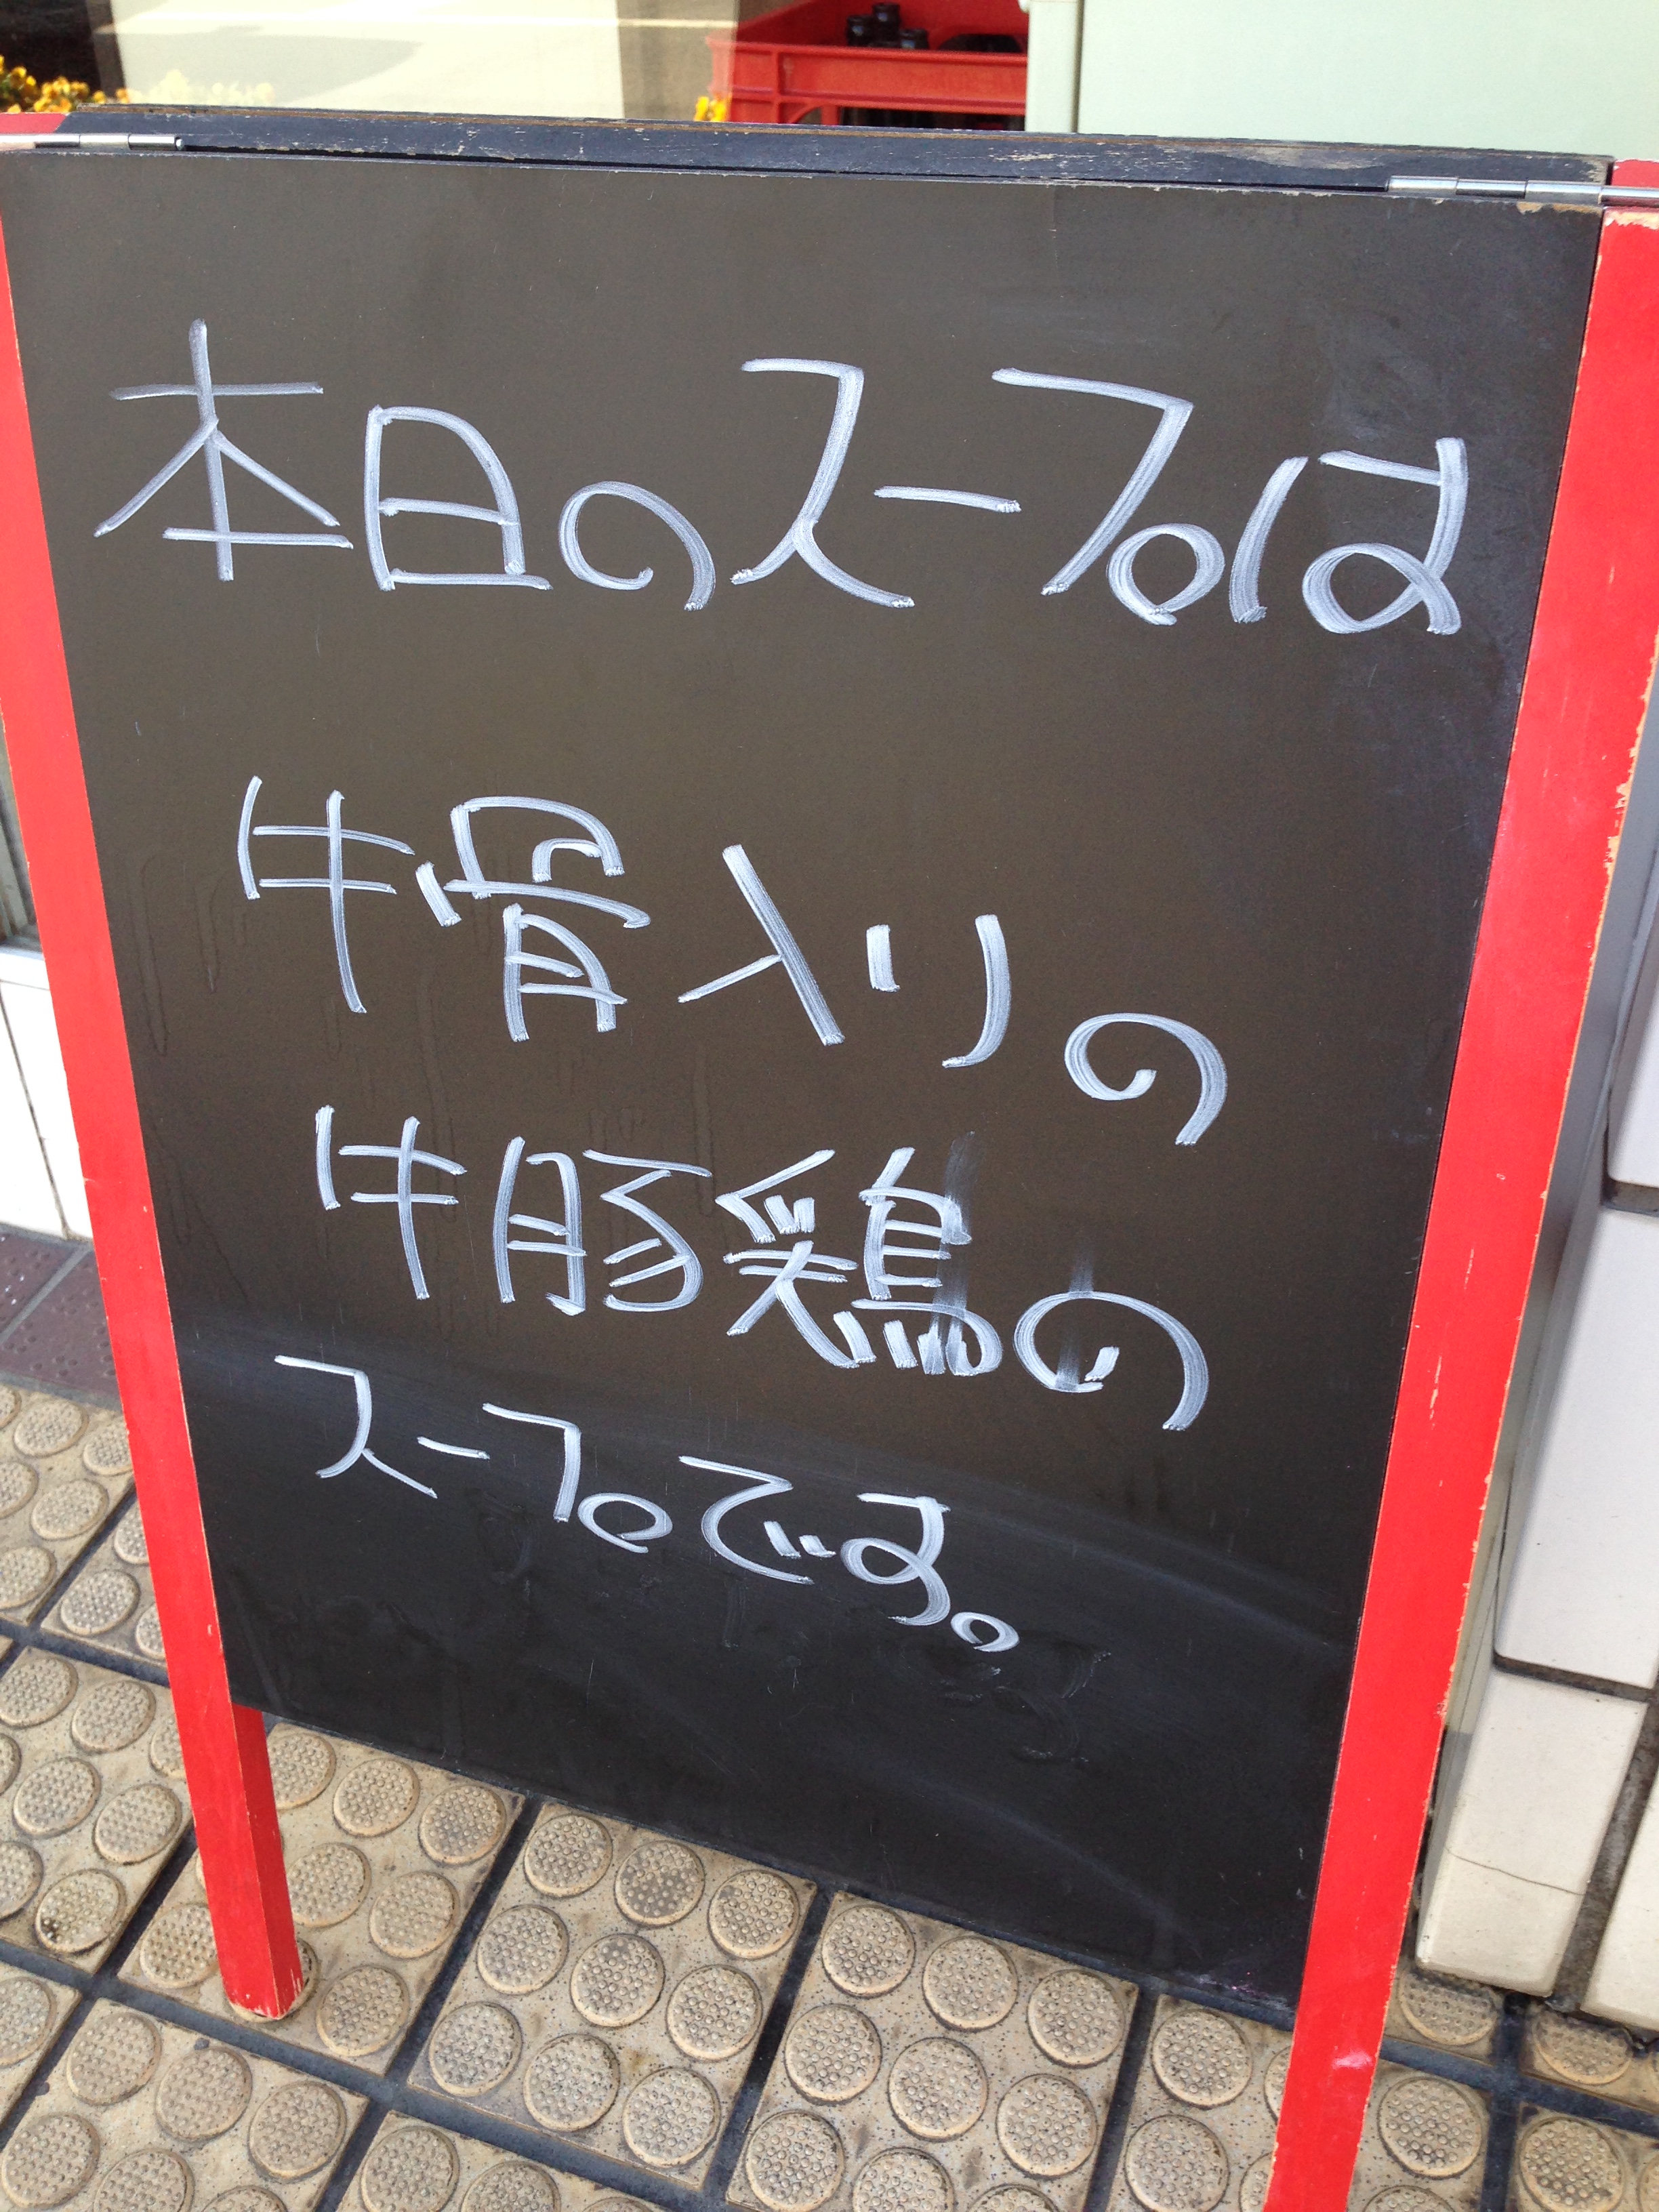 本日のスープは
牛骨入りの
牛豚鶏の
スープです。